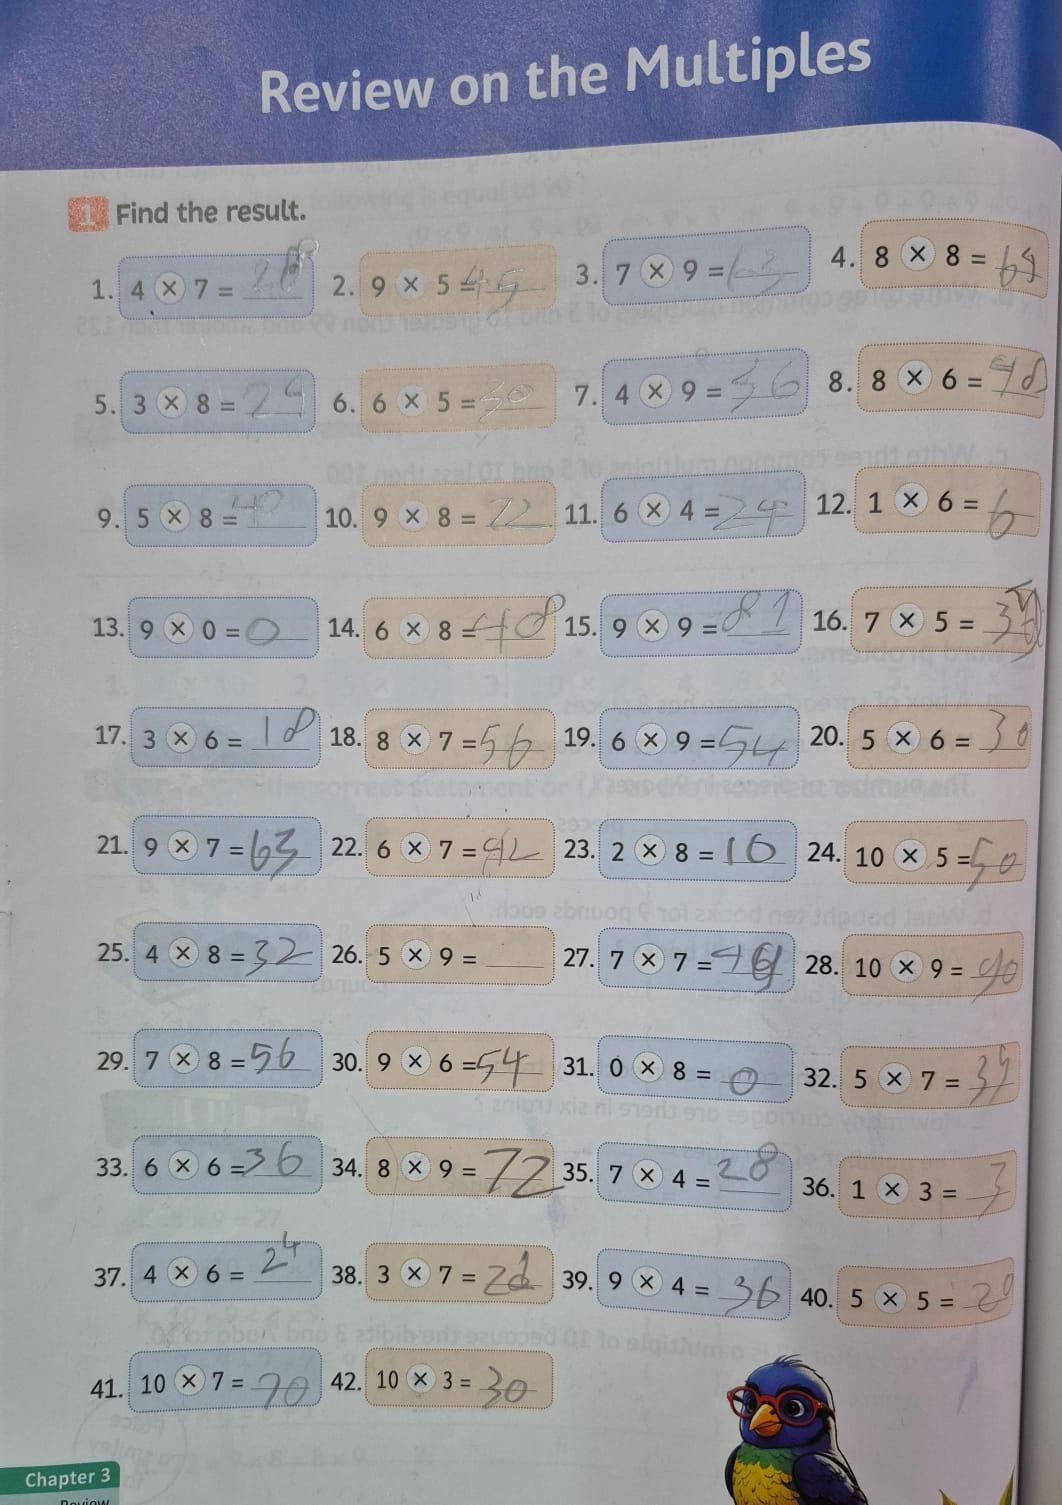 Review on the Multiples
1 Find the result.
1. 4 × 7 = 28 2. 9 × 5 = 45 3. 7 × 9 = 63 4. 8 × 8 =
5. 3 × 8 = 24 6. 6 × 5 = 30 7. 4 × 9 = 36 8. 8 × 6 = 48
9. 5 × 8 = 40 10. 9 × 8 = 72 11. 6 × 4 = 24 12. 1 × 6 = 6
13. 9 × 0 = 0 14. 6 × 8 = 48 15. 9 × 9 = 81 16. 7 × 5 =
17. 3 × 6 = 18 18. 8 × 7 = 56 19. 6 × 9 = 54 20. 5 × 6 = 30
21. 9 × 7 = 63 22. 6 × 7 = 42 23. 2 × 8 = 10 24. 10 × 5 = 50
25. 4 × 8 = 32 26. 5 × 9 = ____ 27. 7 × 7 = 28. 10 × 9 = 90
29. 7 × 8 = 56 30. 9 × 6 = 54 31. 0 × 8 = 0 32. 5 × 7 =
33. 6 × 6 = 36 34. 8 × 9 = 72 35. 7 × 4 = 28 36. 1 × 3 = 3
37. 4 × 6 = 24 38. 3 × 7 = 39. 9 × 4 = 36 40. 5 × 5 = 20
41. 10 × 7 = 70 42. 10 × 3 = 30
Chapter 3
Review